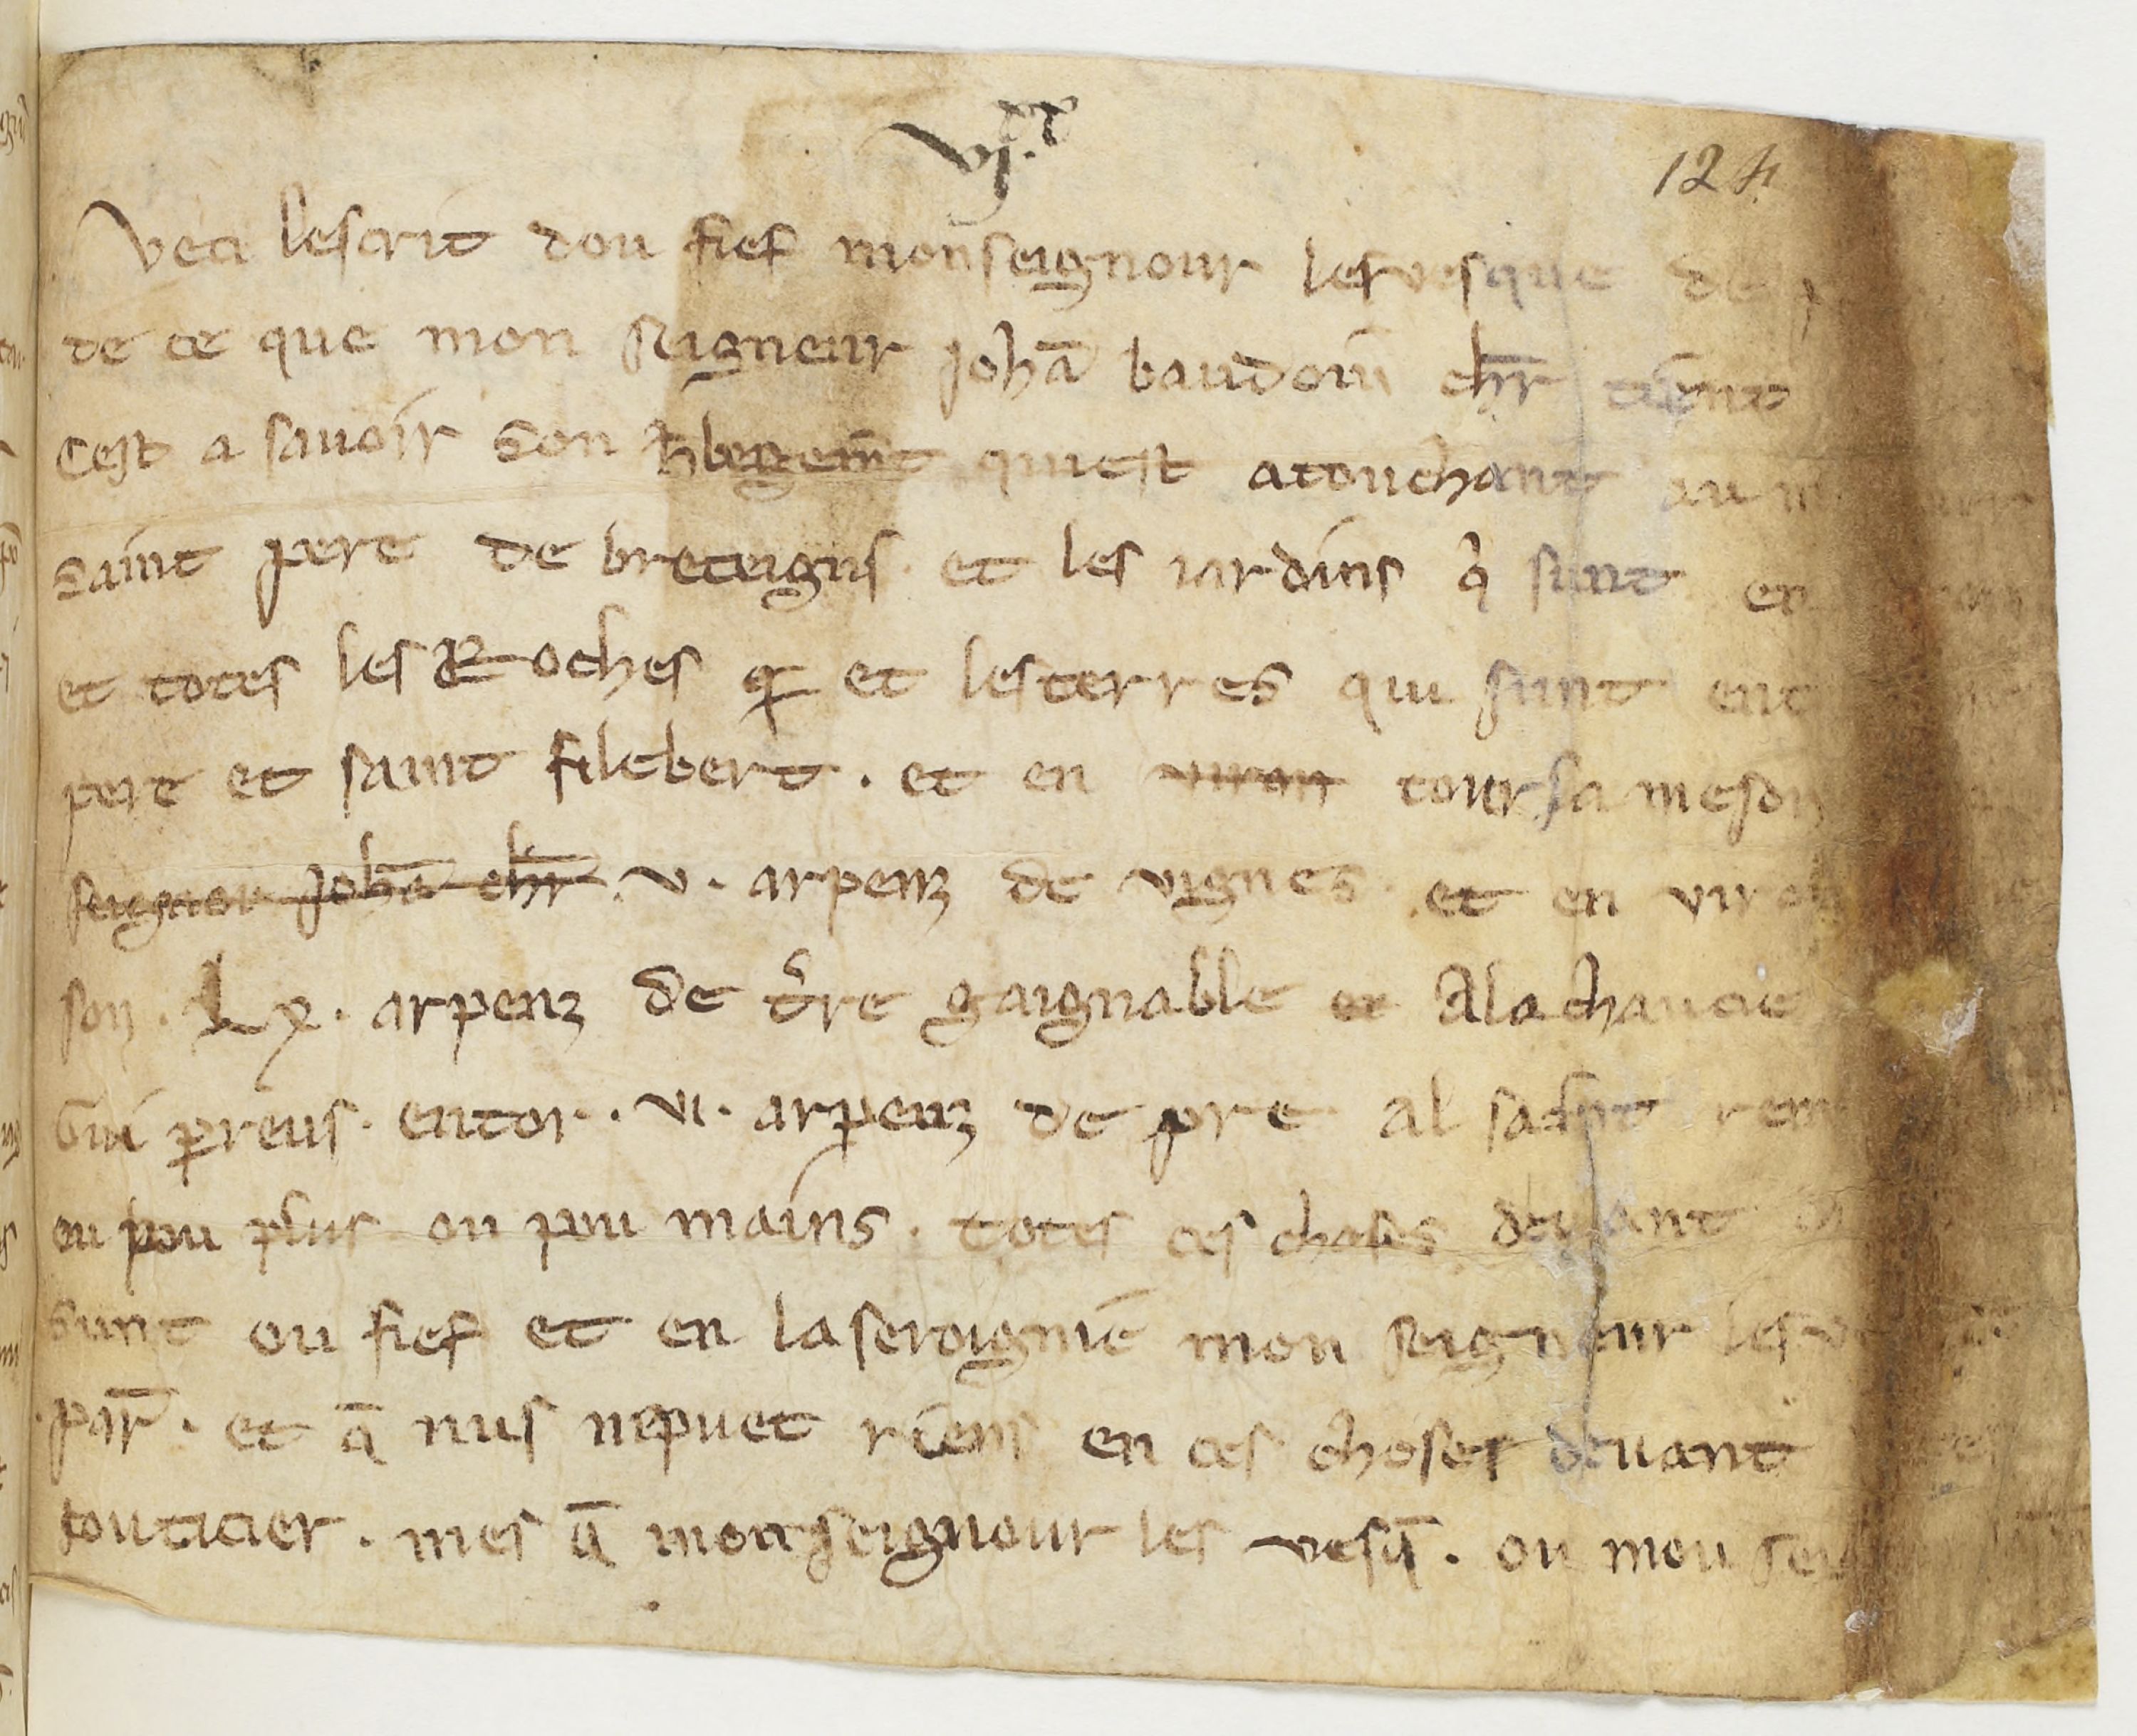 vj.xx
124
Veci lescrit dou fief monseignour lesvesque de p
de ce que mon seigneur Johā baudoiñ chr̄ tient
Cest a savoir son hb̄ergem̄t qui est atouchant au
saint pere de breteigni et les iardins q̇ sunt en
et totes les Roches q̵ et les terres qui sunt ent
pere et saint filebert . et en viron tour sa meson
seignou Johā chr̄ . v . arpenz de vignes . et en viron
son . Lx . arpenz de t̉re gaignable et Ala chaucie
Gui preus . entor . vi . arpenz de pre al saint rem
ou pou plus ou pou mains . totes ces choses devant
sunt ou fief et en la seroignie mon seigneur lesv
par̄ . et q̄ nus ne puet riens en ces choses devant
iouticier . mes q̄ monseignour les vesq̄ . ou mon sei